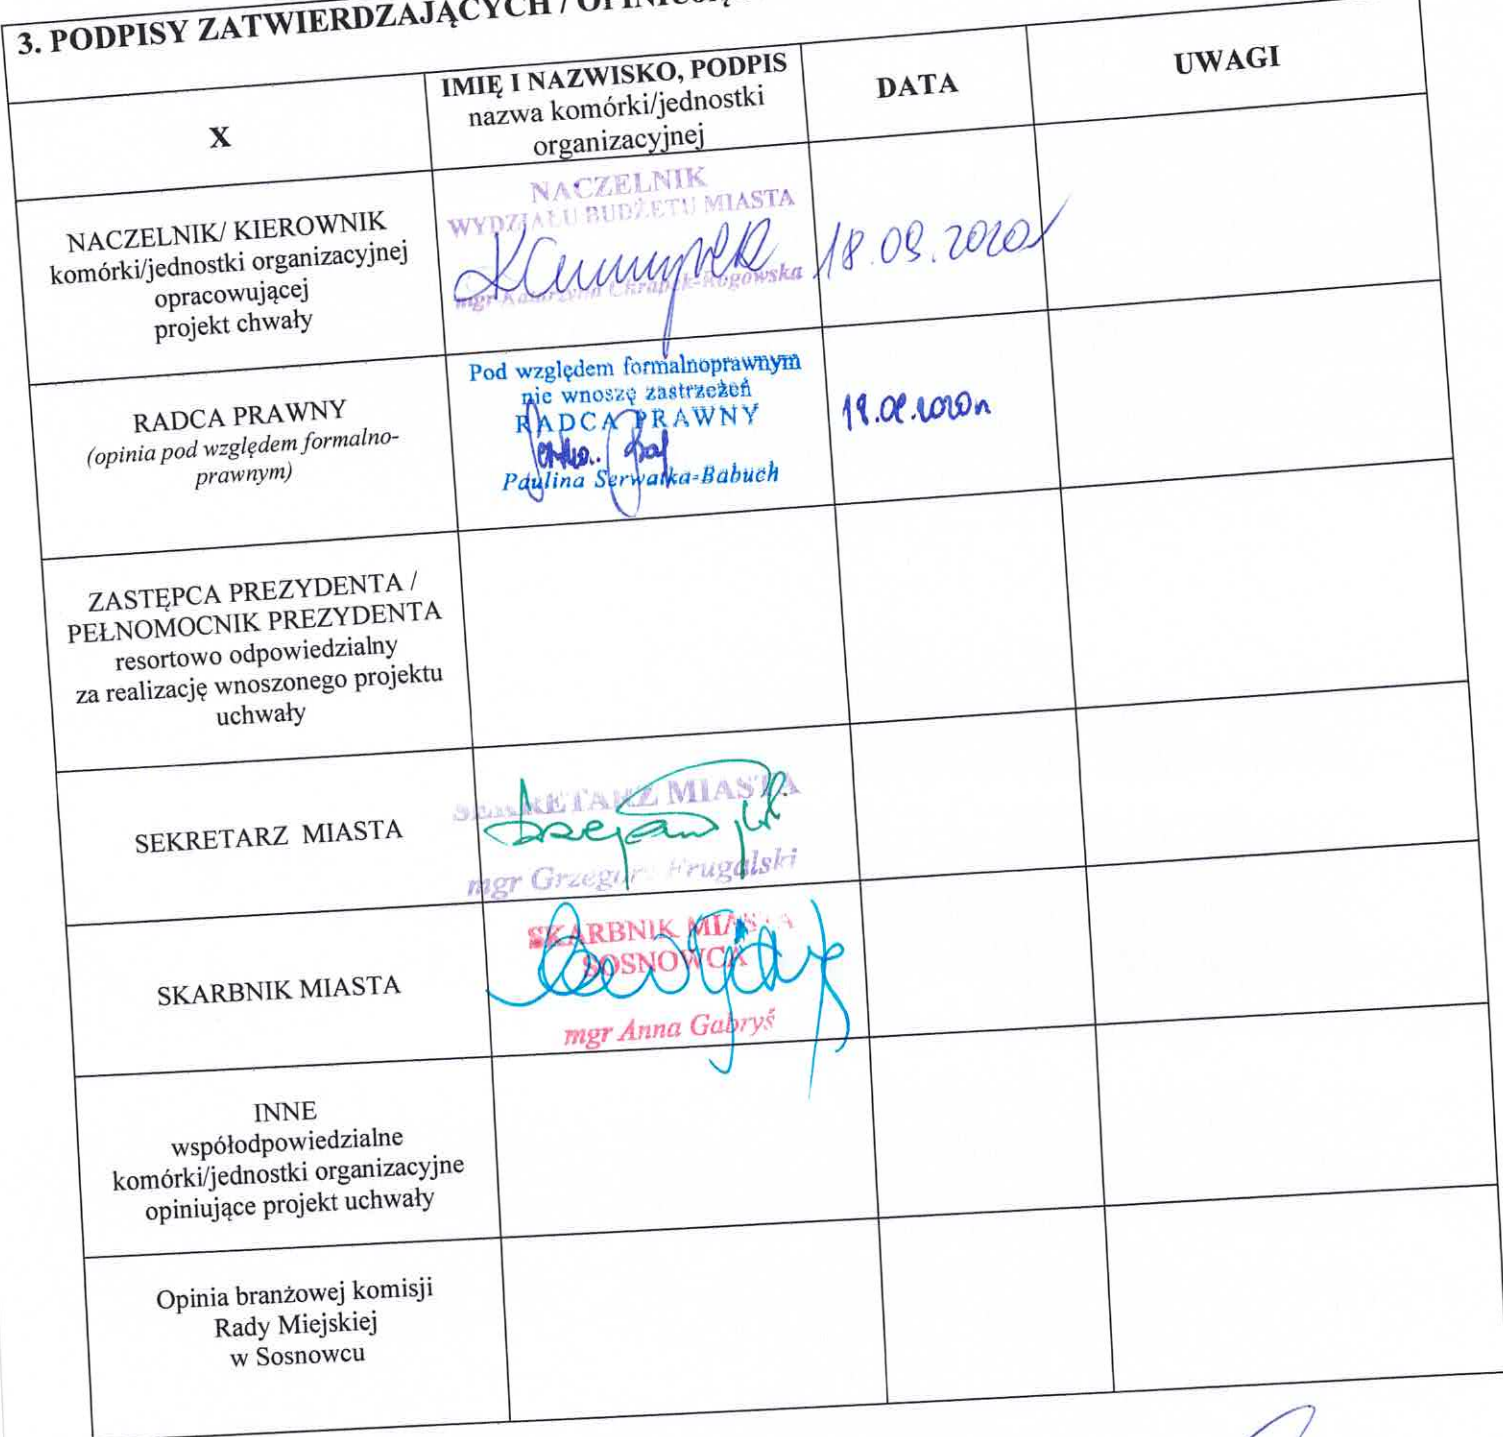 3. PODPISY ZATWIERDZAJĄCYCH /
X
IMIĘ I NAZWISKO, PODPIS
nazwa komórki/jednostki
organizacyjnej
DATA
UWAGI
NACZELNIK/ KIEROWNIK
komórki/jednostki organizacyjnej
opracowującej
projekt chwały
NACZELNIK
WYDZIAŁU BUDŻETU MIASTA
mgr Katarzyna Chrapek-Rogowska
18.09.2020
RADCA PRAWNY
(opinia pod względem formalno-
prawnym)
Pod względem formalnoprawnym
nie wnoszę zastrzeżeń
RADCA PRAWNY
Paulina Serwatka-Babuch
ZASTĘPCA PREZYDENTA /
PEŁNOMOCNIK PREZYDENTA
resortowo odpowiedzialny
za realizację wnoszonego projektu
uchwały
SEKRETARZ MIASTA
SEKRETARZ MIASTA
mgr Grzegorz Frugalski
SKARBNIK MIASTA
SKARBNIK MIASTA
SOSNOWCA
mgr Anna Gabryś
INNE
współodpowiedzialne
komórki/jednostki organizacyjne
opiniujące projekt uchwały
Opinia branżowej komisji
Rady Miejskiej
w Sosnowcu